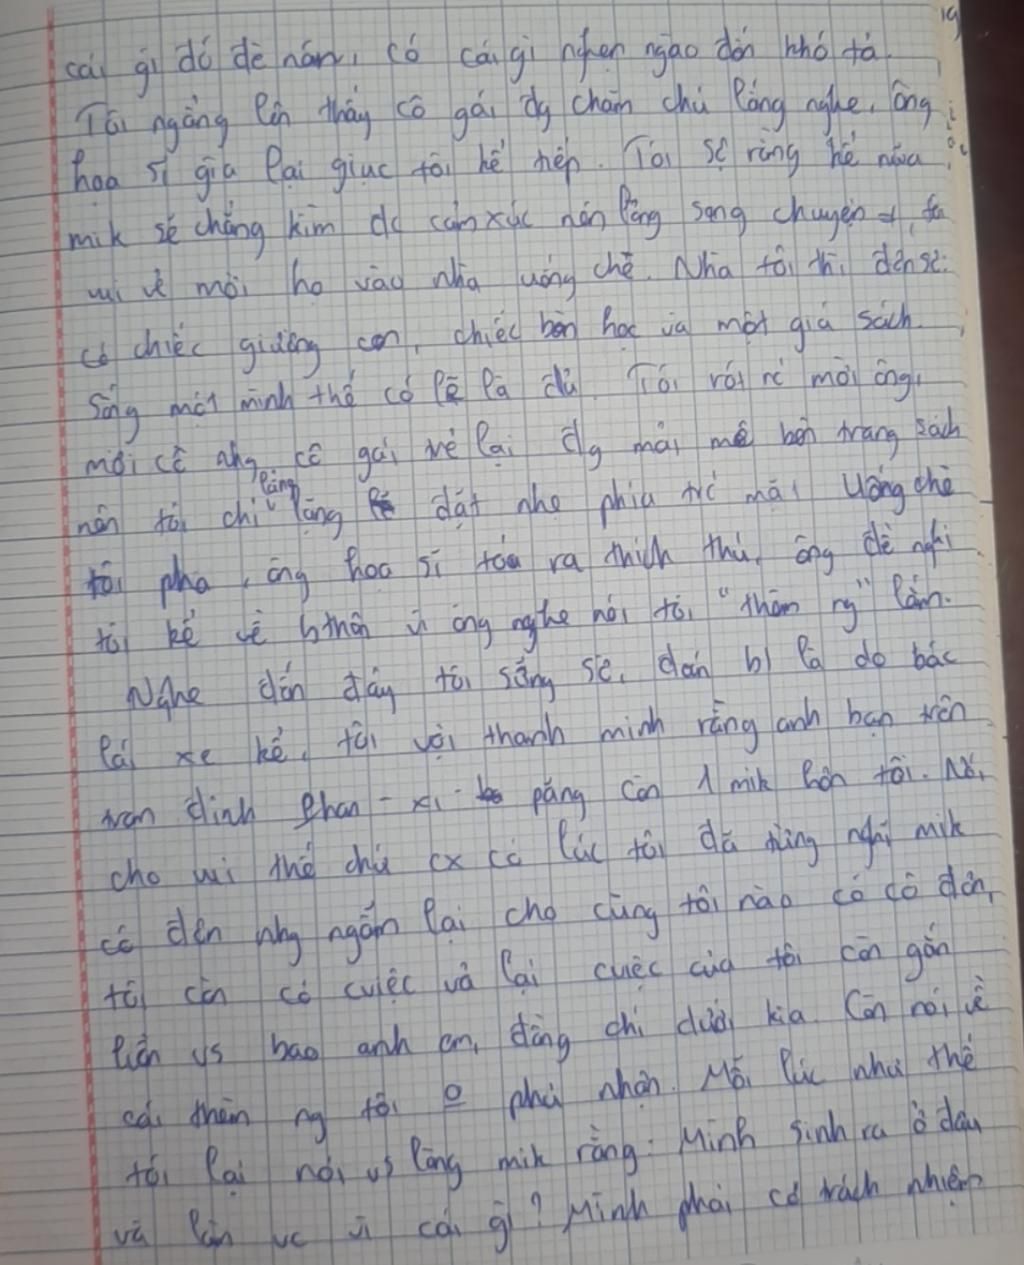 cái gì đó đè nén, có cái gì nghẹn ngào đến khó tả.
Tôi ngẩng lên thấy cô gái đg chăm chú lắng nghe, ông
họa sĩ già lại giục tôi kể tiếp. Tôi sợ rằng kể nữa
mik sẽ chẳng kìm đc cảm xúc nên lảng sang chuyện
mời họ vào nhà uống chè. Nhà tôi thì đơn sơ:
có chiếc giường con, chiếc bàn học và một giá sách.
Sống một mình thế có lẽ là đủ. Tôi rót nc mời ông,
mời cô nhg cô gái trẻ lại đg mải mê bên trang sách
nên tôi chỉ lẳng lặng đặt nhẹ phía trc mặt. Uống chè
tôi pha, ông họa sĩ tỏa ra thích thú, ông đề nghị
tôi kể về bthân vì ông nghe nói tôi "thèm ng" lắm.
Nghe đến đây tôi sững sờ, đoán bt là do bác
lái xe kể, tôi vội thanh minh rằng anh bạn trên
trạm đỉnh Phan-xi-păng còn 1 mik hơn tôi. Nói
cho vui thế chứ cx có lúc tôi đã từng nghĩ mik
cô đơn nhg ngẫm lại cho cùng tôi nào có cô đơn,
tôi còn có cviệc và lại cviệc của tôi còn gắn
liền vs bao anh em, đồng chí dưới kia. Còn nói về
cái thèm ng tôi o phủ nhận. Mỗi lúc như thế
tôi lại nói vs lòng mik rằng: Mình sinh ra ở đâu
và làm vc vì cái gì? Mình phải có trách nhiệm